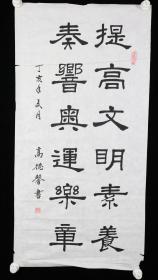 提高文明素養
奏響奧運樂章
丁亥年夏月
高德馨書